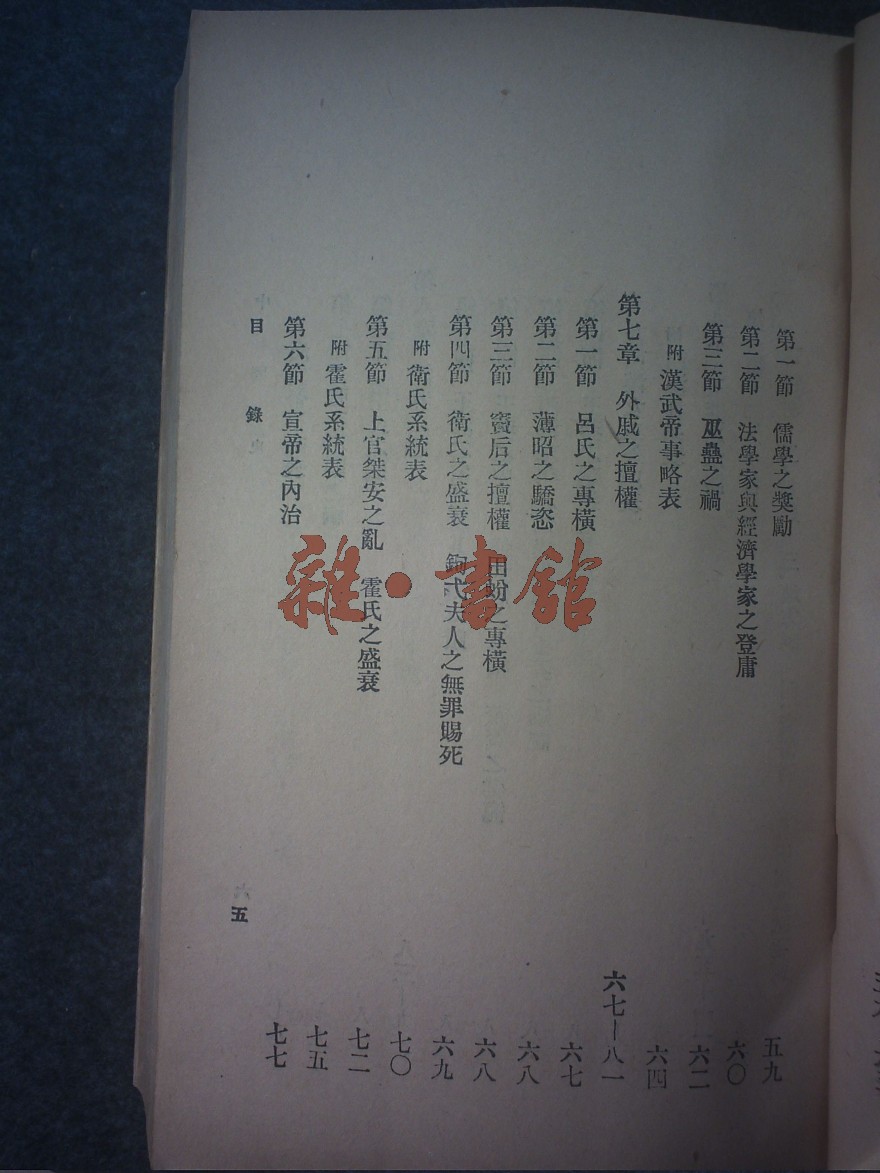 第一節 儒學之獎勵 五九
第二節 法學家與經濟學家之登庸 六〇
第三節 巫蠱之禍 六二
附 漢武帝事略表 六四
第七章 外戚之擅權 六七—八一
第一節 呂氏之專橫 六七
第二節 薄昭之驕恣 六八
第三節 竇后之擅權 田蚡之專橫 六八
第四節 衛氏之盛衰 鉤弋夫人之無罪賜死 六九
附 衛氏系統表 七〇
第五節 上官桀安之亂 霍氏之盛衰 七二
附 霍氏系統表 七五
第六節 宣帝之內治 七七
目錄 五
雜·書館